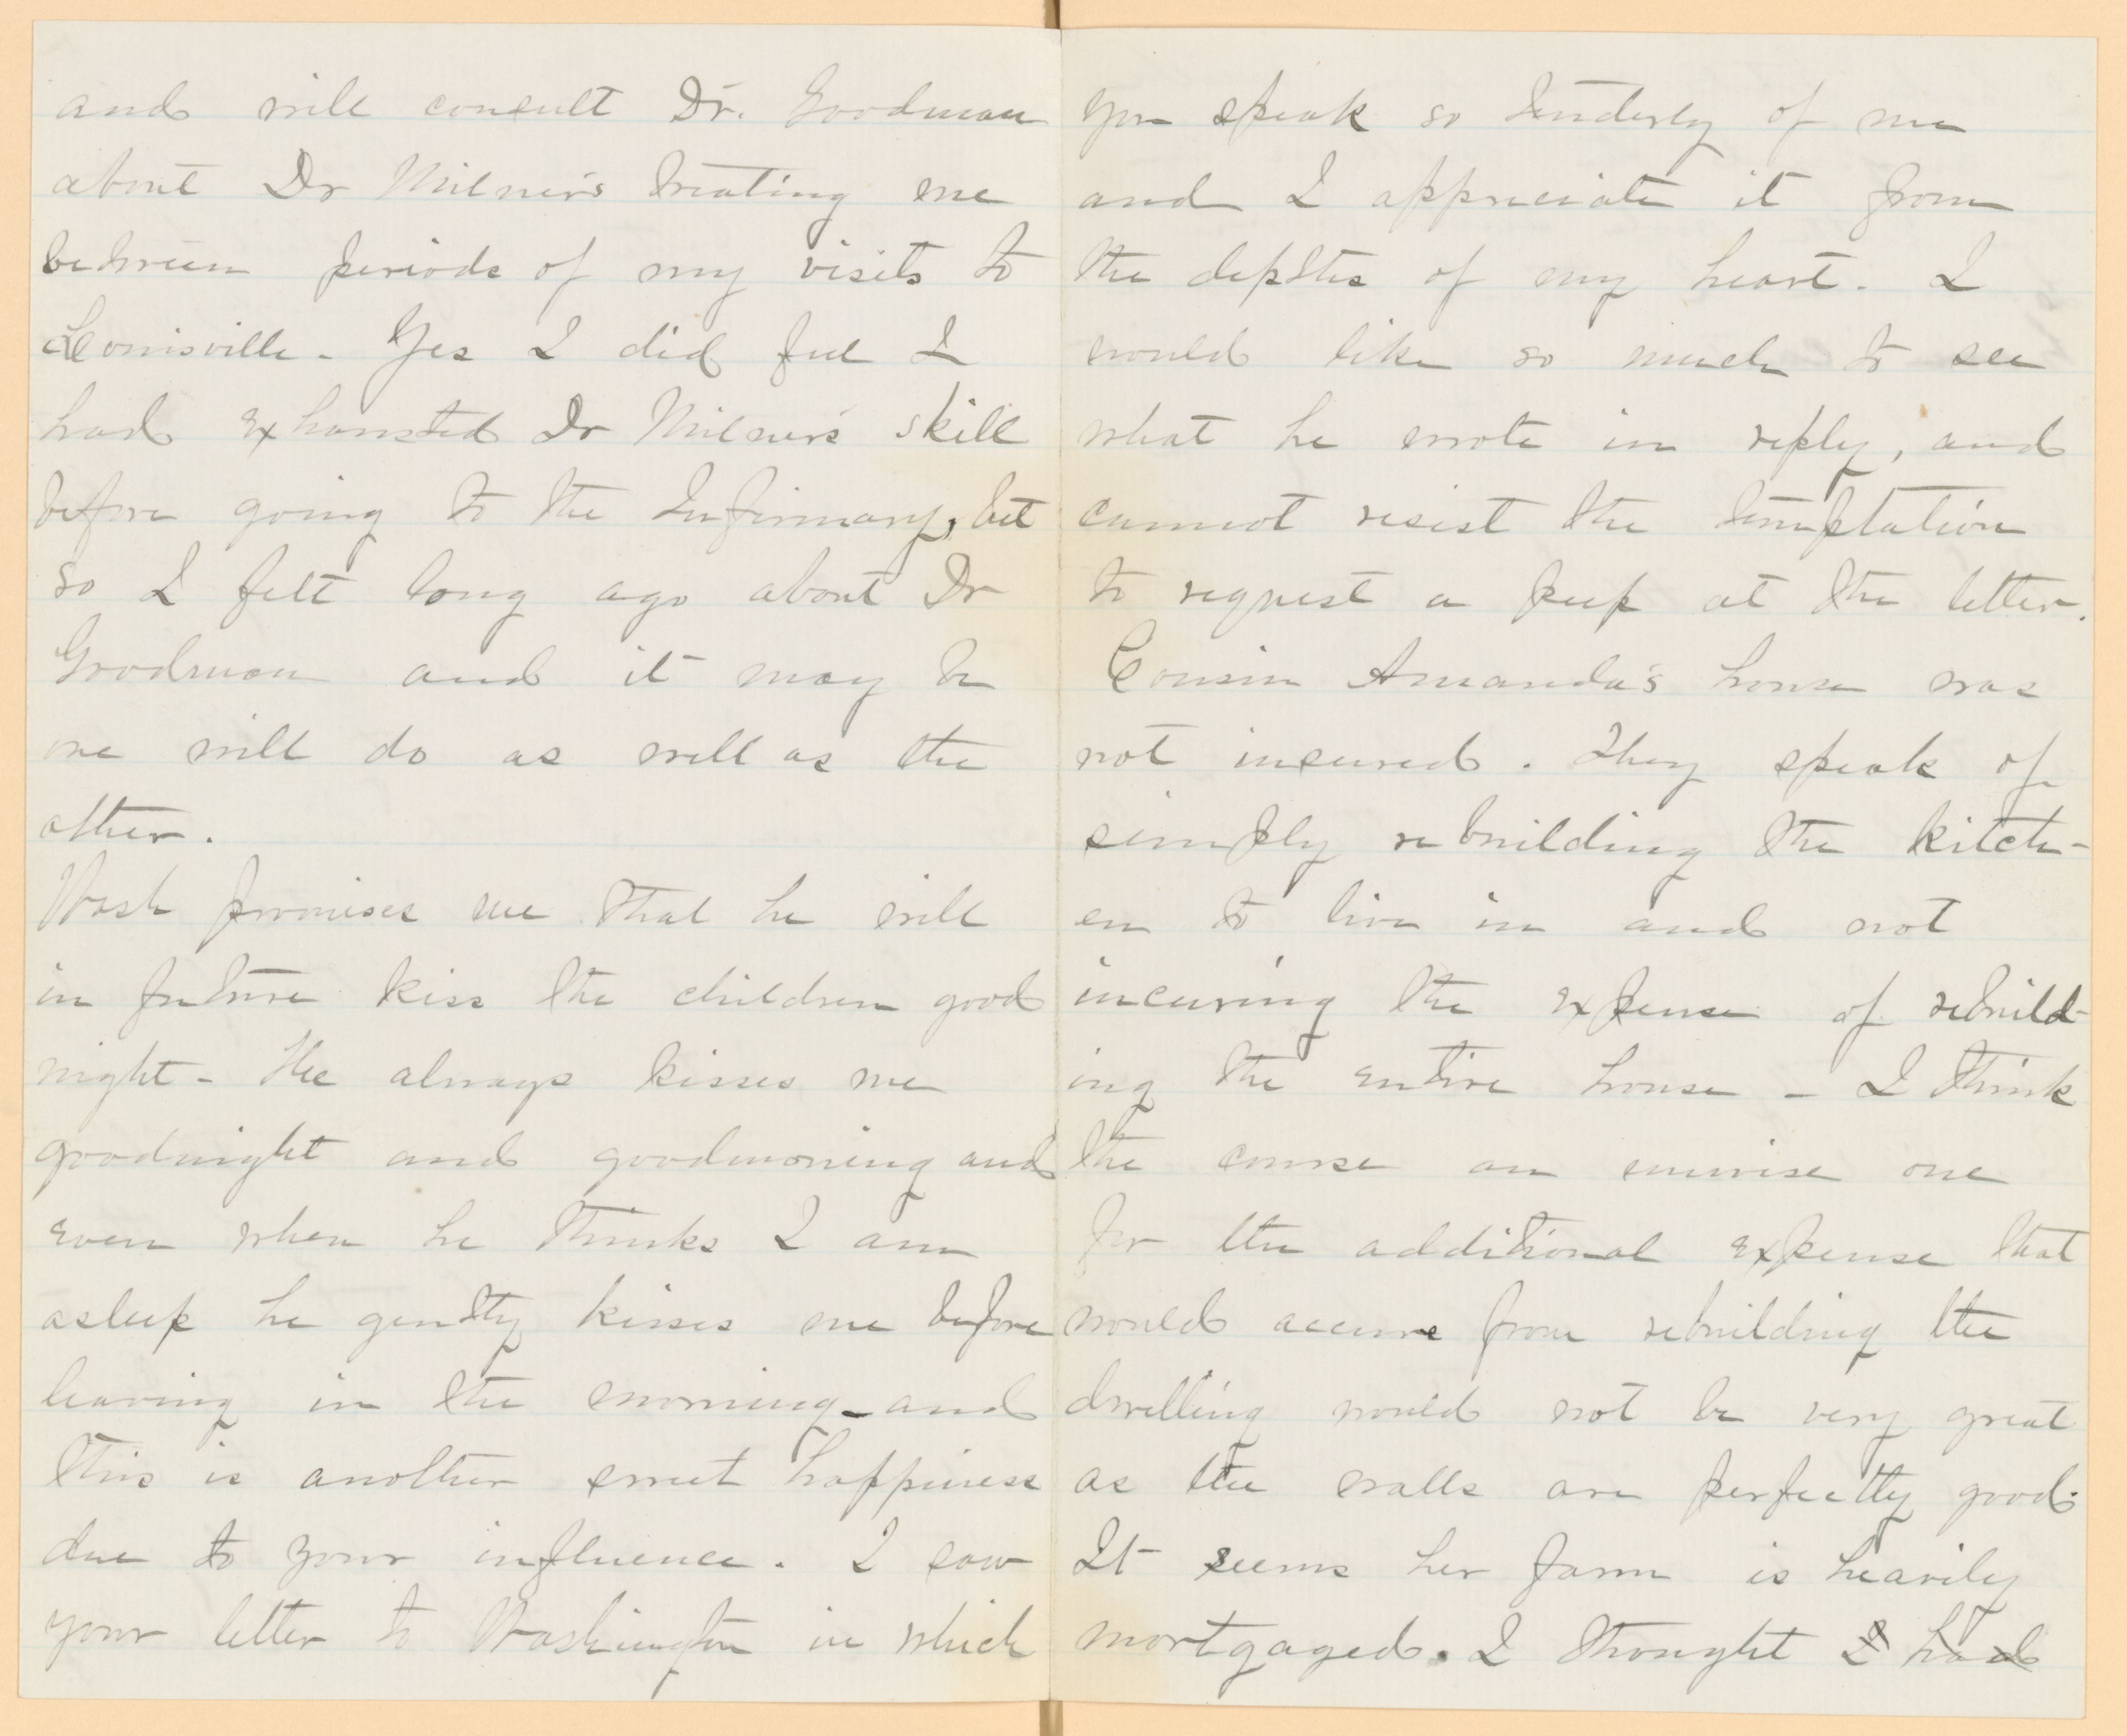 and will consult Dr. Goodman
about Dr Milner's treating me
between periods of my visits to
Louisville - Yes I did feel I
had exhausted Dr Milner's skill
before going to the Infirmary, but
so I felt long ago about Dr
Goodman and it may be
one will do as well as the
other.
Wash promises me that he will
in future kiss the children good
night - He always kisses me
goodnight and goodmorning and
even when he thinks I am
asleep he gently kisses me before
leaving in the morning - and
this is another sweet happiness
due to your influence. I saw
your letter to Washington in which
you speak so tenderly of me
and I appreciate it from
the depths of my heart. I
would like so much to see
what he wrote in reply, and
cannot resist the temptation
to request a peep at the letter.
Cousin Amanda's house was
not insured. They speak of
simply rebuilding the kitch-
en to live in and not
incuring the expense of rebuild-
ing the entire house - I think
the course an unwise one
for the additional expense that
would accure from rebuilding the
dwelling would not be very great
as the walls are perfectly good.
It seems her farm is heavily
mortgaged. I thought I had